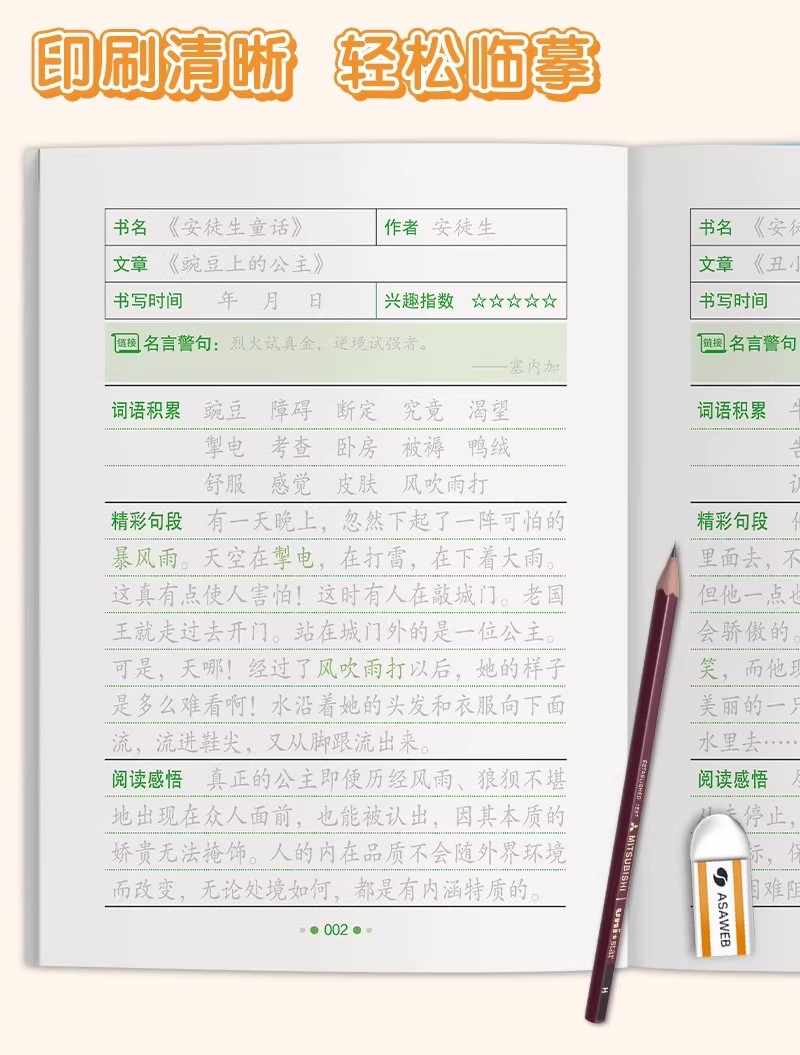 印刷清晰 轻松临摹
书名 《安徒生童话》 作者 安徒生
文章 《豌豆上的公主》
书写时间 年 月 日 兴趣指数 ☆☆☆☆☆
链接 名言警句：烈火试真金，逆境试强者。
——塞内加
词语积累 豌豆 障碍 断定 究竟 渴望
掣电 考查 卧房 被褥 鸭绒
舒服 感觉 皮肤 风吹雨打
精彩句段 有一天晚上，忽然下起了一阵可怕的
暴风雨。天空在掣电，在打雷，在下着大雨。
这真有点使人害怕！这时有人在敲城门。老国
王就走过去开门。站在城门外的是一位公主。
可是，天哪！经过了风吹雨打以后，她的样子
是多么难看啊！水沿着她的头发和衣服向下面
流，流进鞋尖，又从脚跟流出来。
阅读感悟 真正的公主即便历经风雨、狼狈不堪
地出现在众人面前，也能被认出，因其本质的
娇贵无法掩饰。人的内在品质不会随外界环境
而改变，无论处境如何，都是有内涵特质的。
002
书名 《安
文章 《丑小
书写时间
链接 名言警句
词语积累
精彩句段
里面去，不
但他一点也
会骄傲的。
笑，而他现
美丽的一只
水里去……
阅读感悟
停止，
示，保
困难阻
ESTABLISHED 1887
MITSUBISHI
uni star
H
ASAWEB